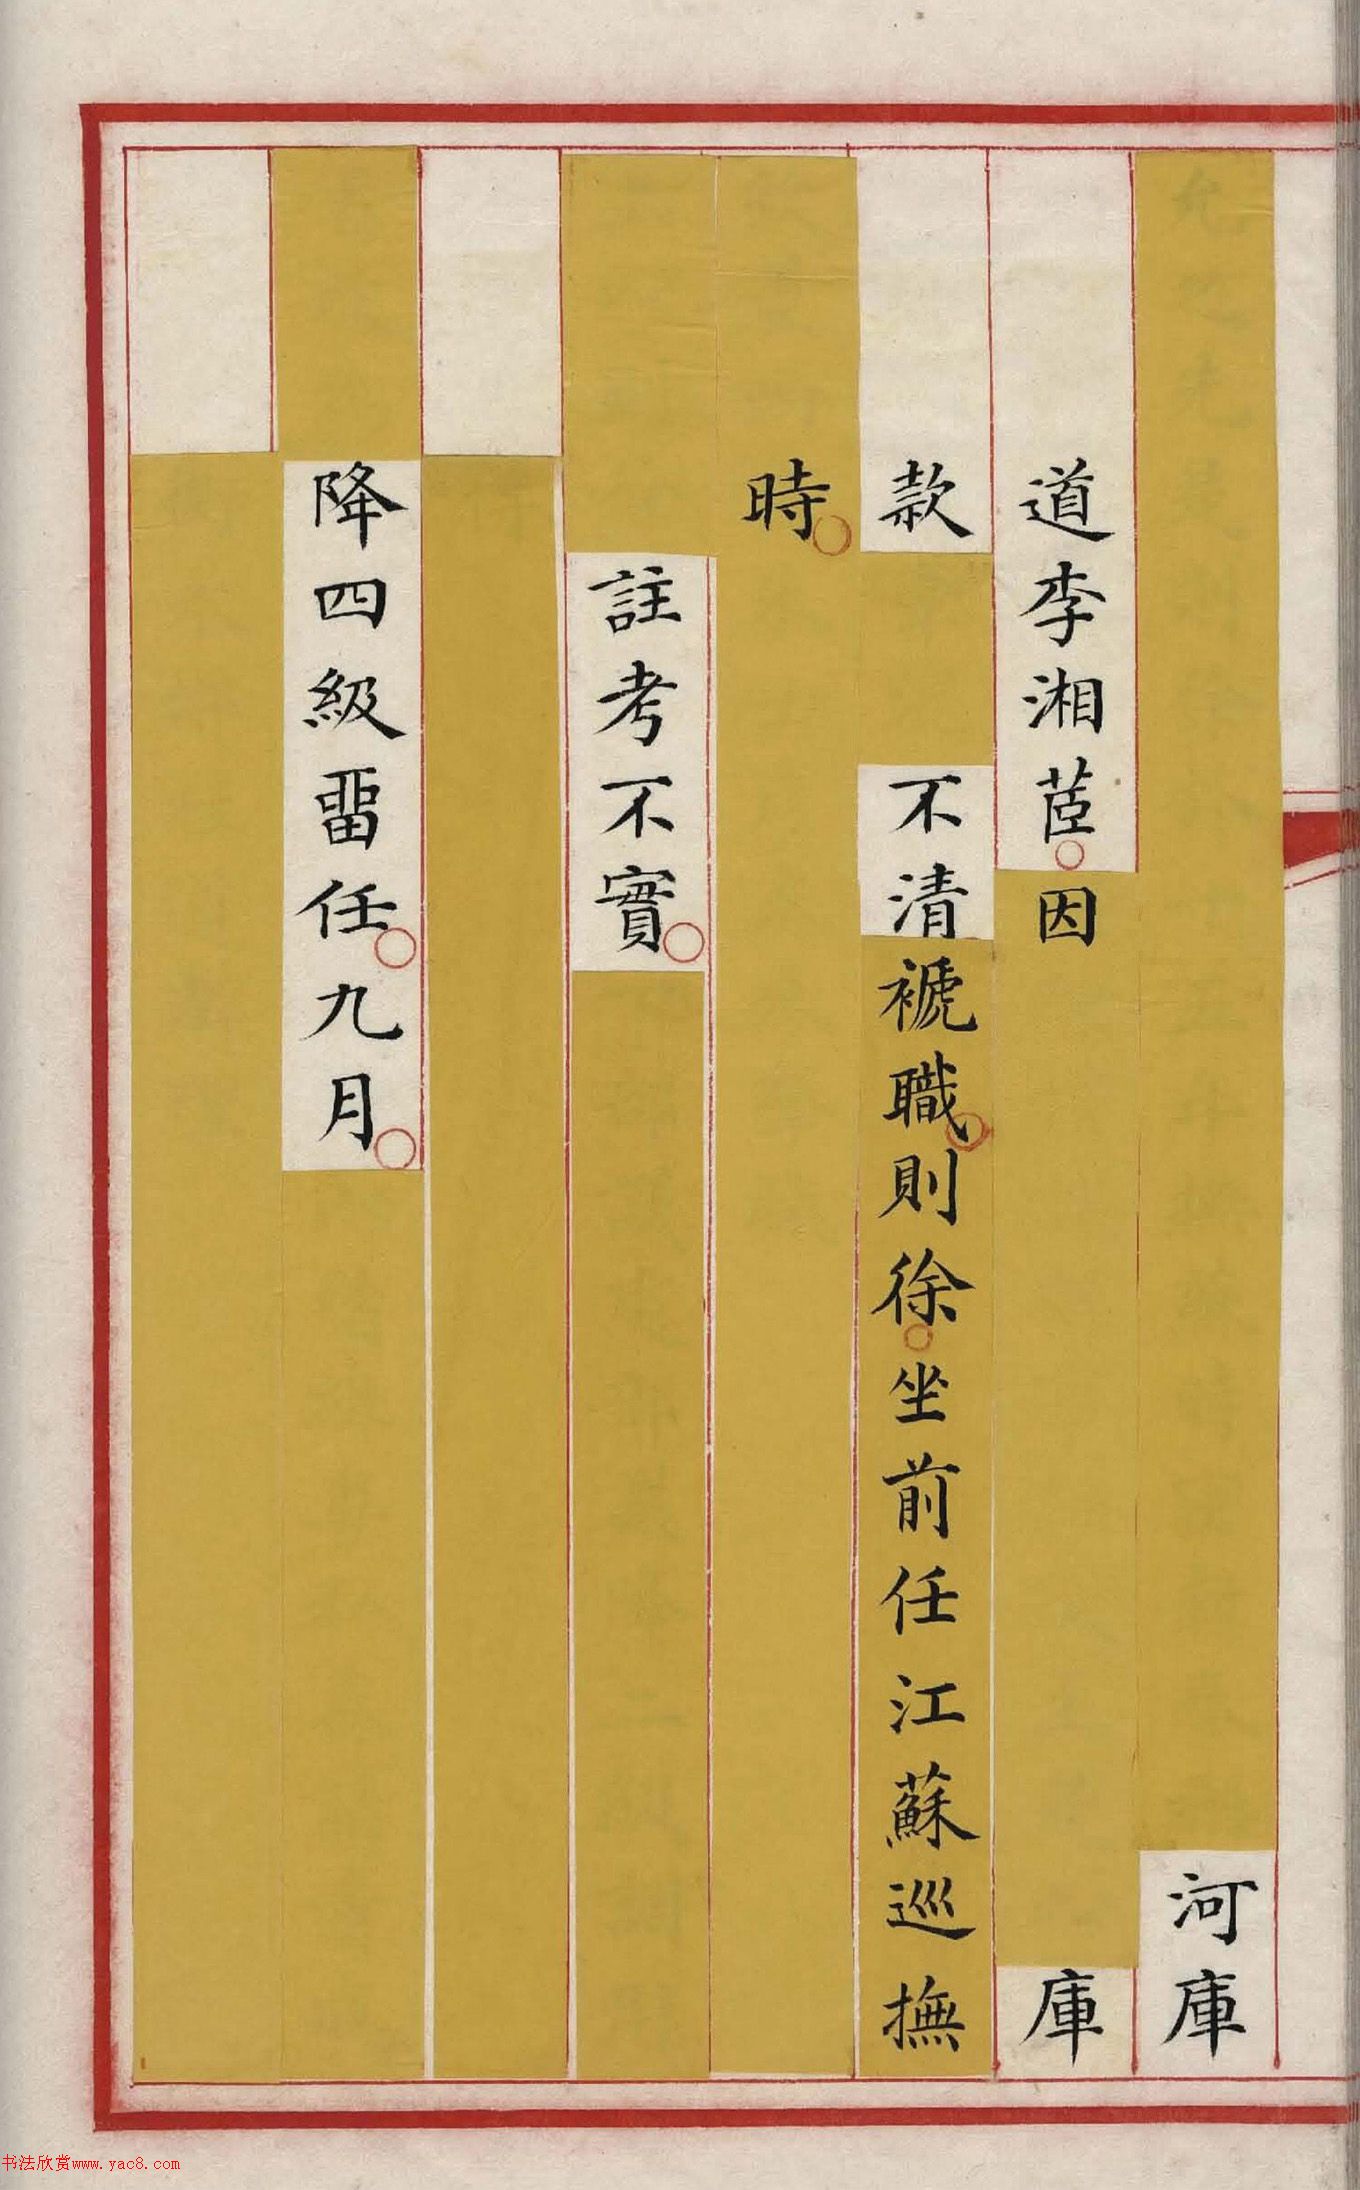 河庫
道李湘茝因庫
款不清褫職則徐坐前任江蘇巡撫
時
註考不實
降四級畱任九月
书法欣赏www.yac8.com